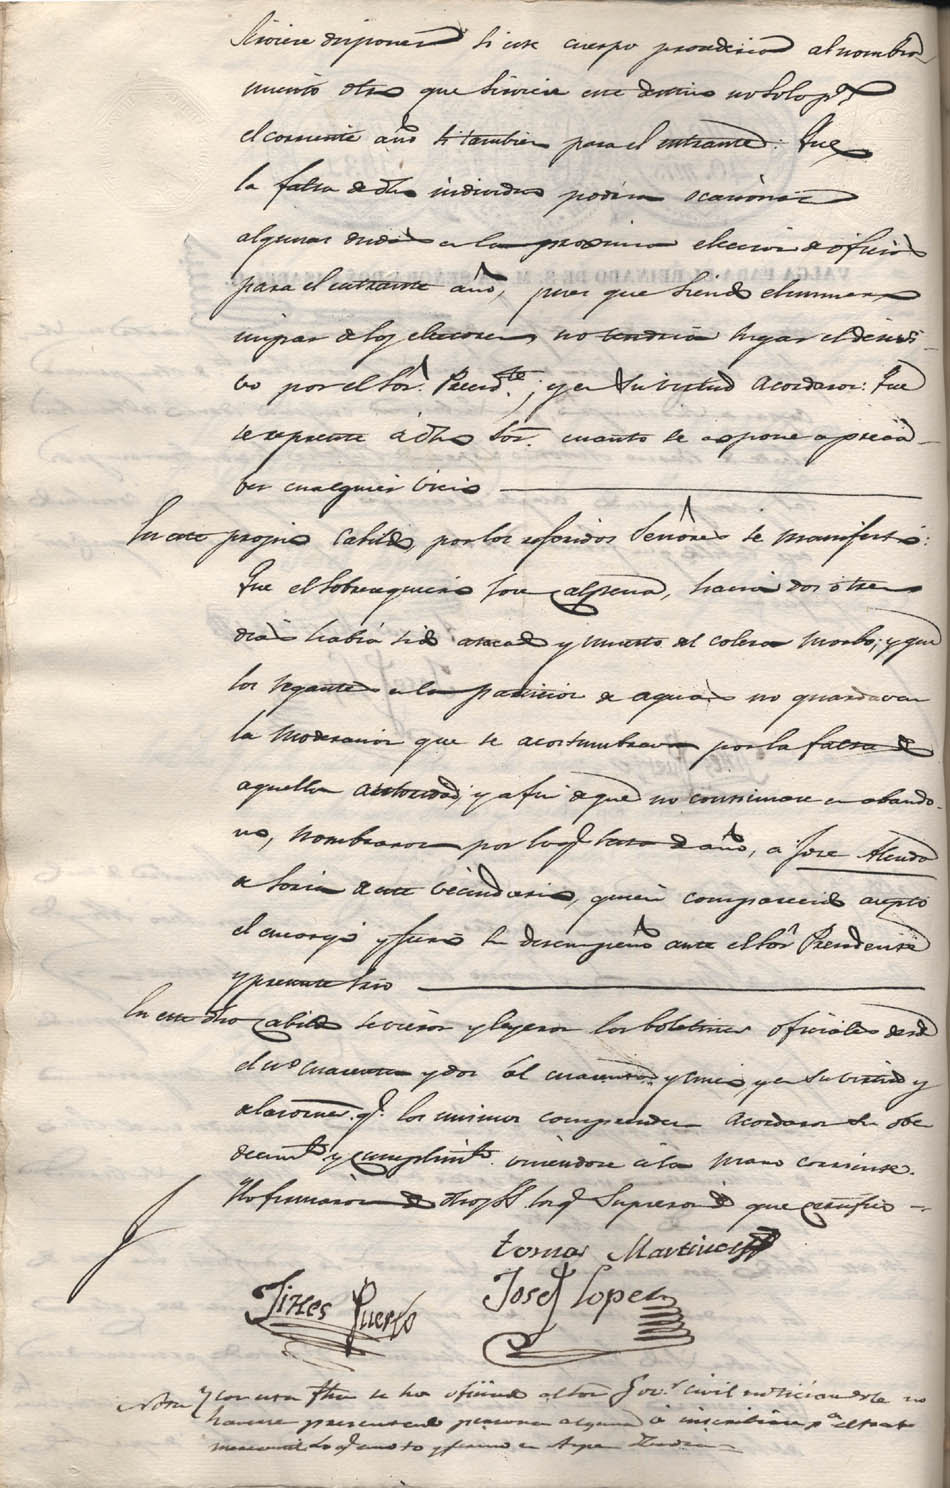 sirviere disponer si este cuerpo procederia al nombra-
miento otro que sirviere este destino no solo pª
el corriente año si tambien para el entrante: Que
la falta de dho individuo podria ocacionar
algunas dudas en la procsima eleccion de oficios
para el entrante año, pues que siendo el numero
impar de los electores no tendria lugar el decisi-
vo por el Sor. Presidte; y en su virtud acordaron: Que
se represente á dho Sor. cuanto se espone a precá-
ber cualquier vicio
En este propio Cabildo, por los referidos Señores se manifestó:
Que el sobreaquiero Jose, hacia dos ó tres
dias habia sido atacado y muerto del colera morbo; y que
los regantes en la particion de aguas no guardavan
la moderacion que se acostumbrava por la falta de
aquella autoridad; y a fin de que no continuase en abando-
no, nombraron por lo q.e resta de año, a Jose
de Soria de este vecindario, quien comparecido aceptó
el encargo y juró su desempeño ante el Sor Presidente
y presente Srio
En este dho Cabildo se vieron y leyeron los boletines oficiales desde
el nº cuarenta y dos al cuarenta y, y en su virtud y
de las ordenes q.e los mismos comprenden acordaron su obe
decimto y cumplimto uniendose á la mano corriente.
Y lo firmaron de dhos SS. los q.e supieron de que certifico
Tomas Martinez
Jose Lopez
Gines Puerto
Nota Con esta fha se ha oficiado al Sor Gov.r civil noticiandole no
haverse presentado persona alguna á inscribirse pª el
lo q.e anoto y firmo